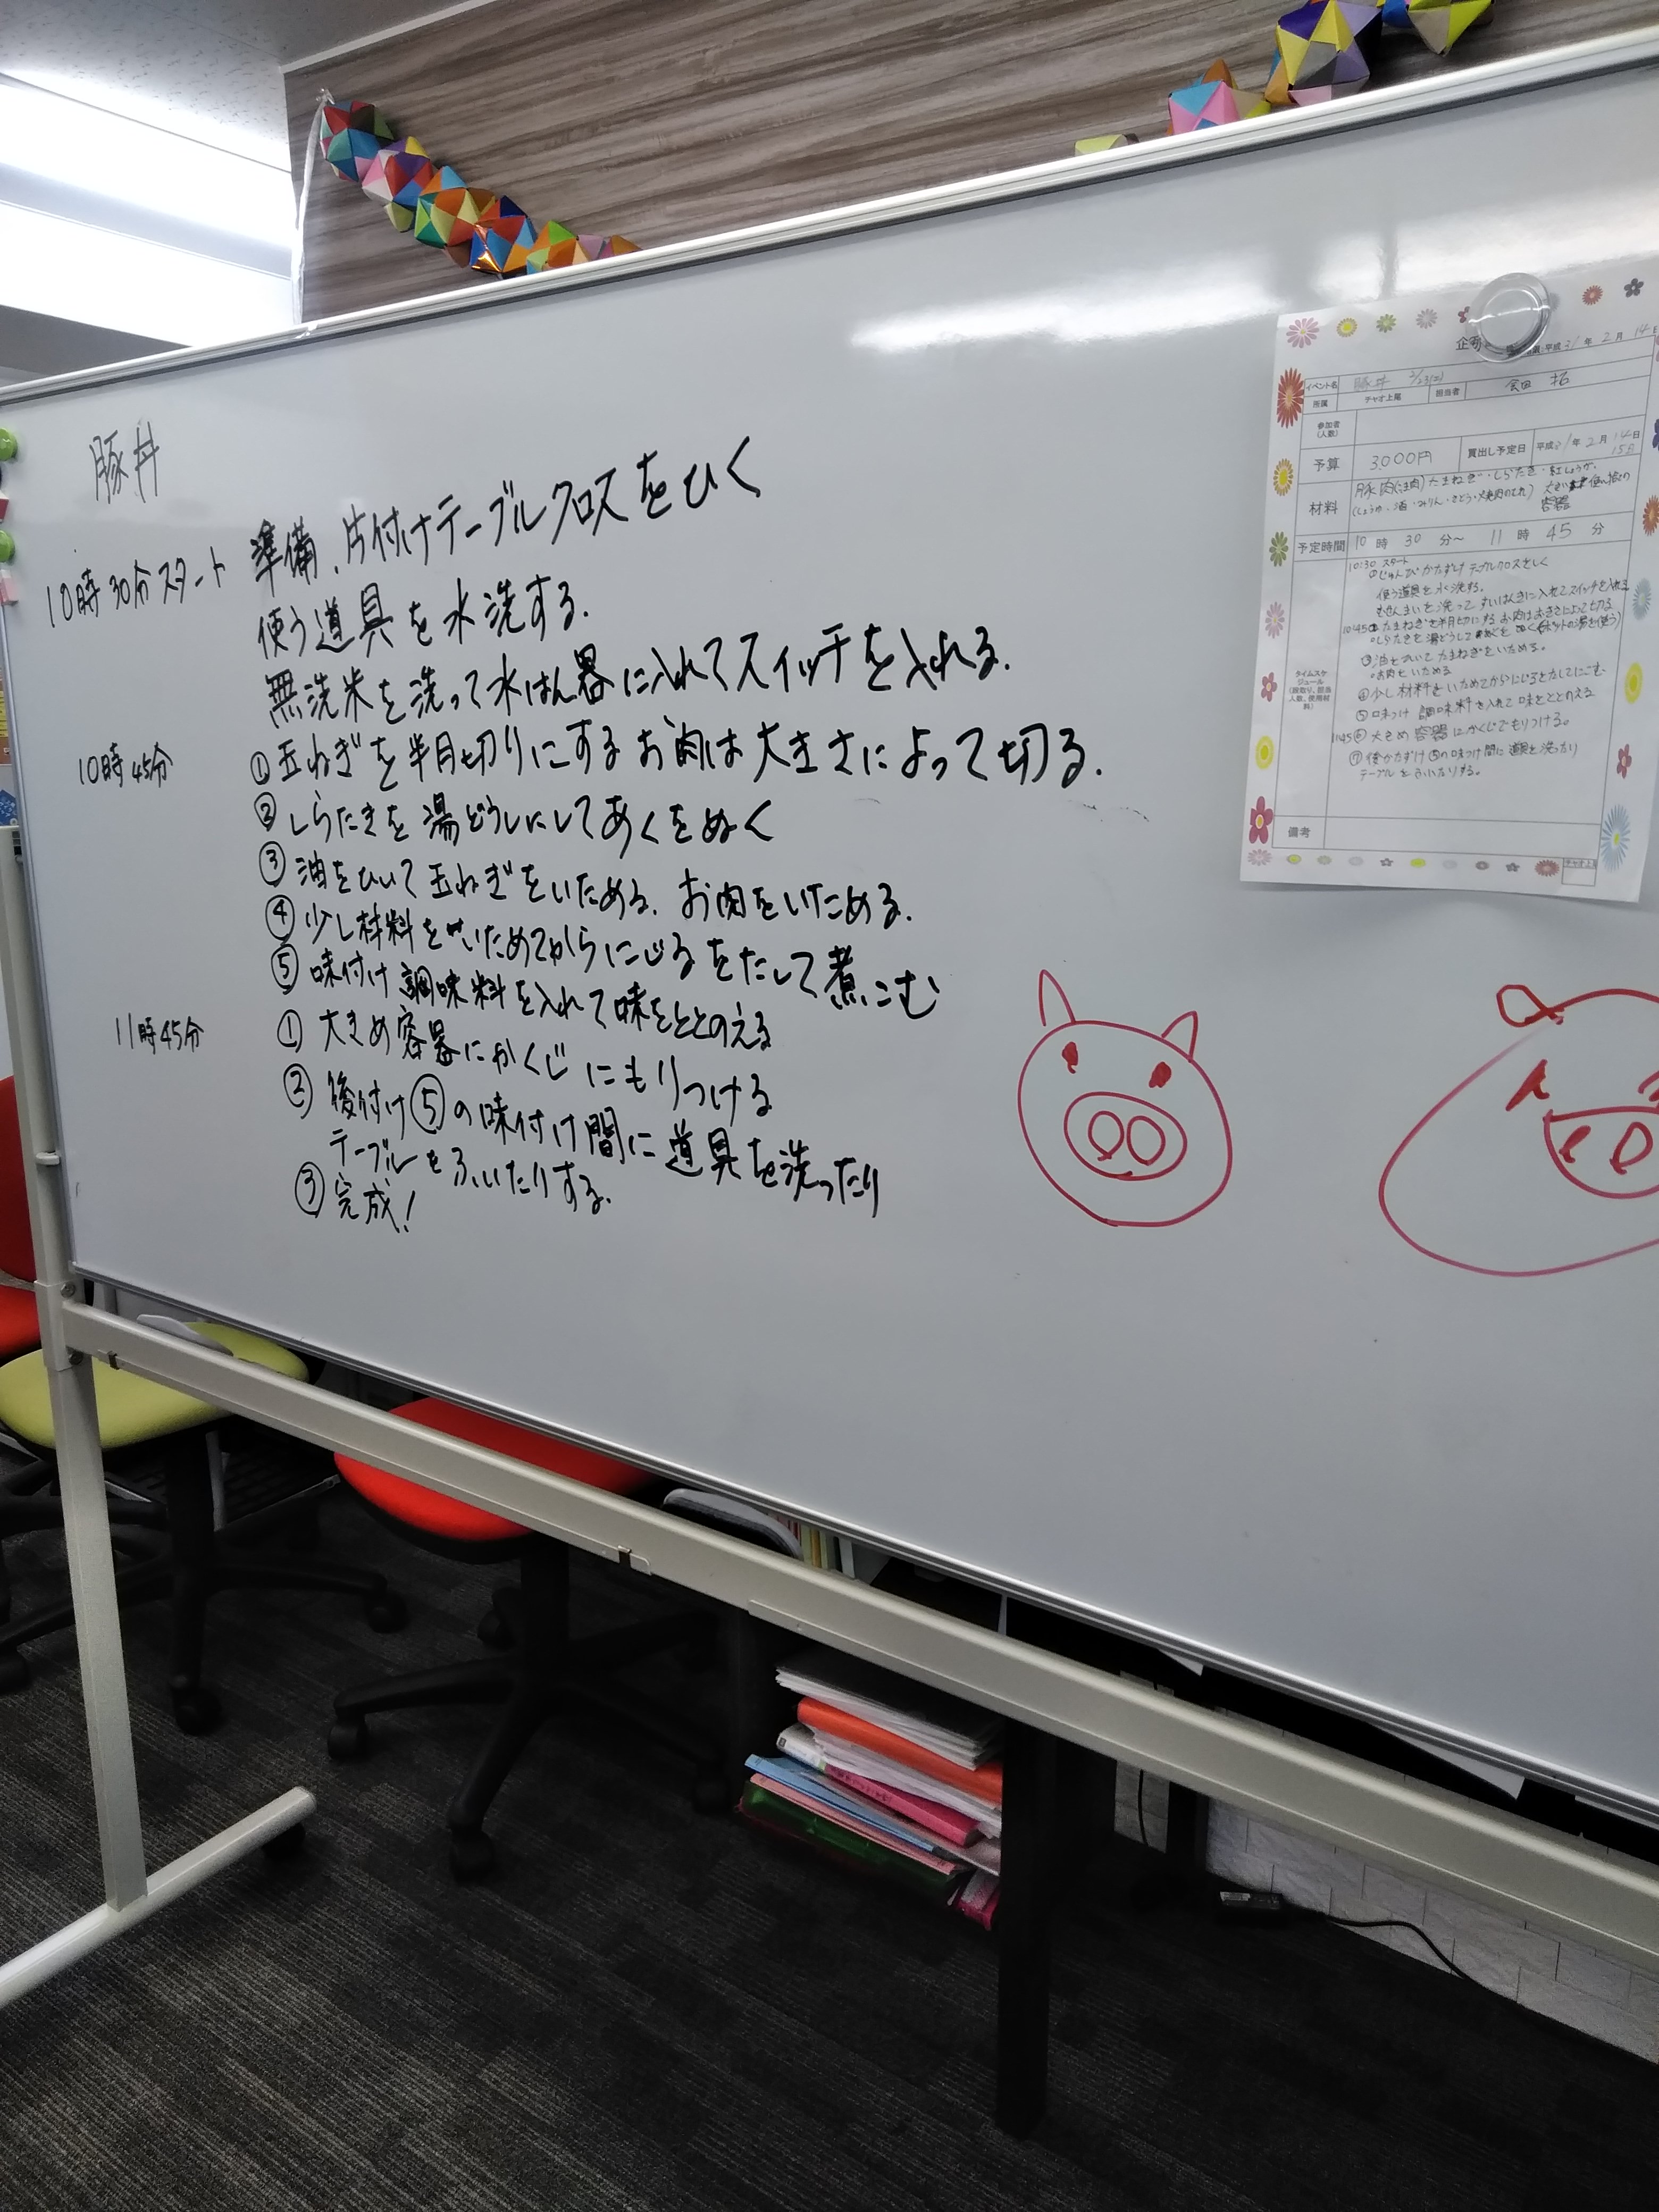 豚丼
10時30分スタート 準備、片付けテーブルクロスをひく
使う道具を水洗する.
無洗米を洗って水はん器に入れてスイッチを入れる.
10時45分 ①玉ねぎを半月切りにするお肉は大きさによって切る.
②しらたきを湯どうしにしてあくをぬく
③油をひいて玉ねぎをいためる. お肉をいためる.
④少し材料をいためてからにじるをたして煮こむ
⑤味付け調味料を入れて味をととのえる
11時45分 ①大きめ容器にかくじにもりつける
②後付け⑤の味付け間に道具を洗ったり
テーブルをふいたりする.
③完成!
平成31年2月14日
イベント名 豚丼 担当者
所属 チャオ上尾
参加者(人数)
予算 3000円 買出し予定日 平成31年2月14日
15日
材料 豚肉 たまねぎ・しらたき・紅しょうが、
(しょうゆ・酒・みりん・さとう・焼肉のたれ) 容器
予定時間 10時30分〜11時45分
タイムスケジュール(段取り、担当人数、使用材料)
10:30 スタート
じゅんびかたずけ テーブルクロスをしく
使う道具を水洗する。
むせんまいを洗って すいはんきに入れてスイッチを入れる
10:45 たまねぎを半月切にする お肉はおおきさによって切る
油をひいてたまねぎをいためる。
お肉をいためる
④少し材料をいためてからにじるをたしてにこむ
⑤味つけ 調味料を入れて味をととのえる
11:45⑥大きめ容器にかくじでもりつける。
⑦後かたずけ⑤の味つけ間に道具を洗ったり
テーブルをふいたりする。
備考
チャオ上尾